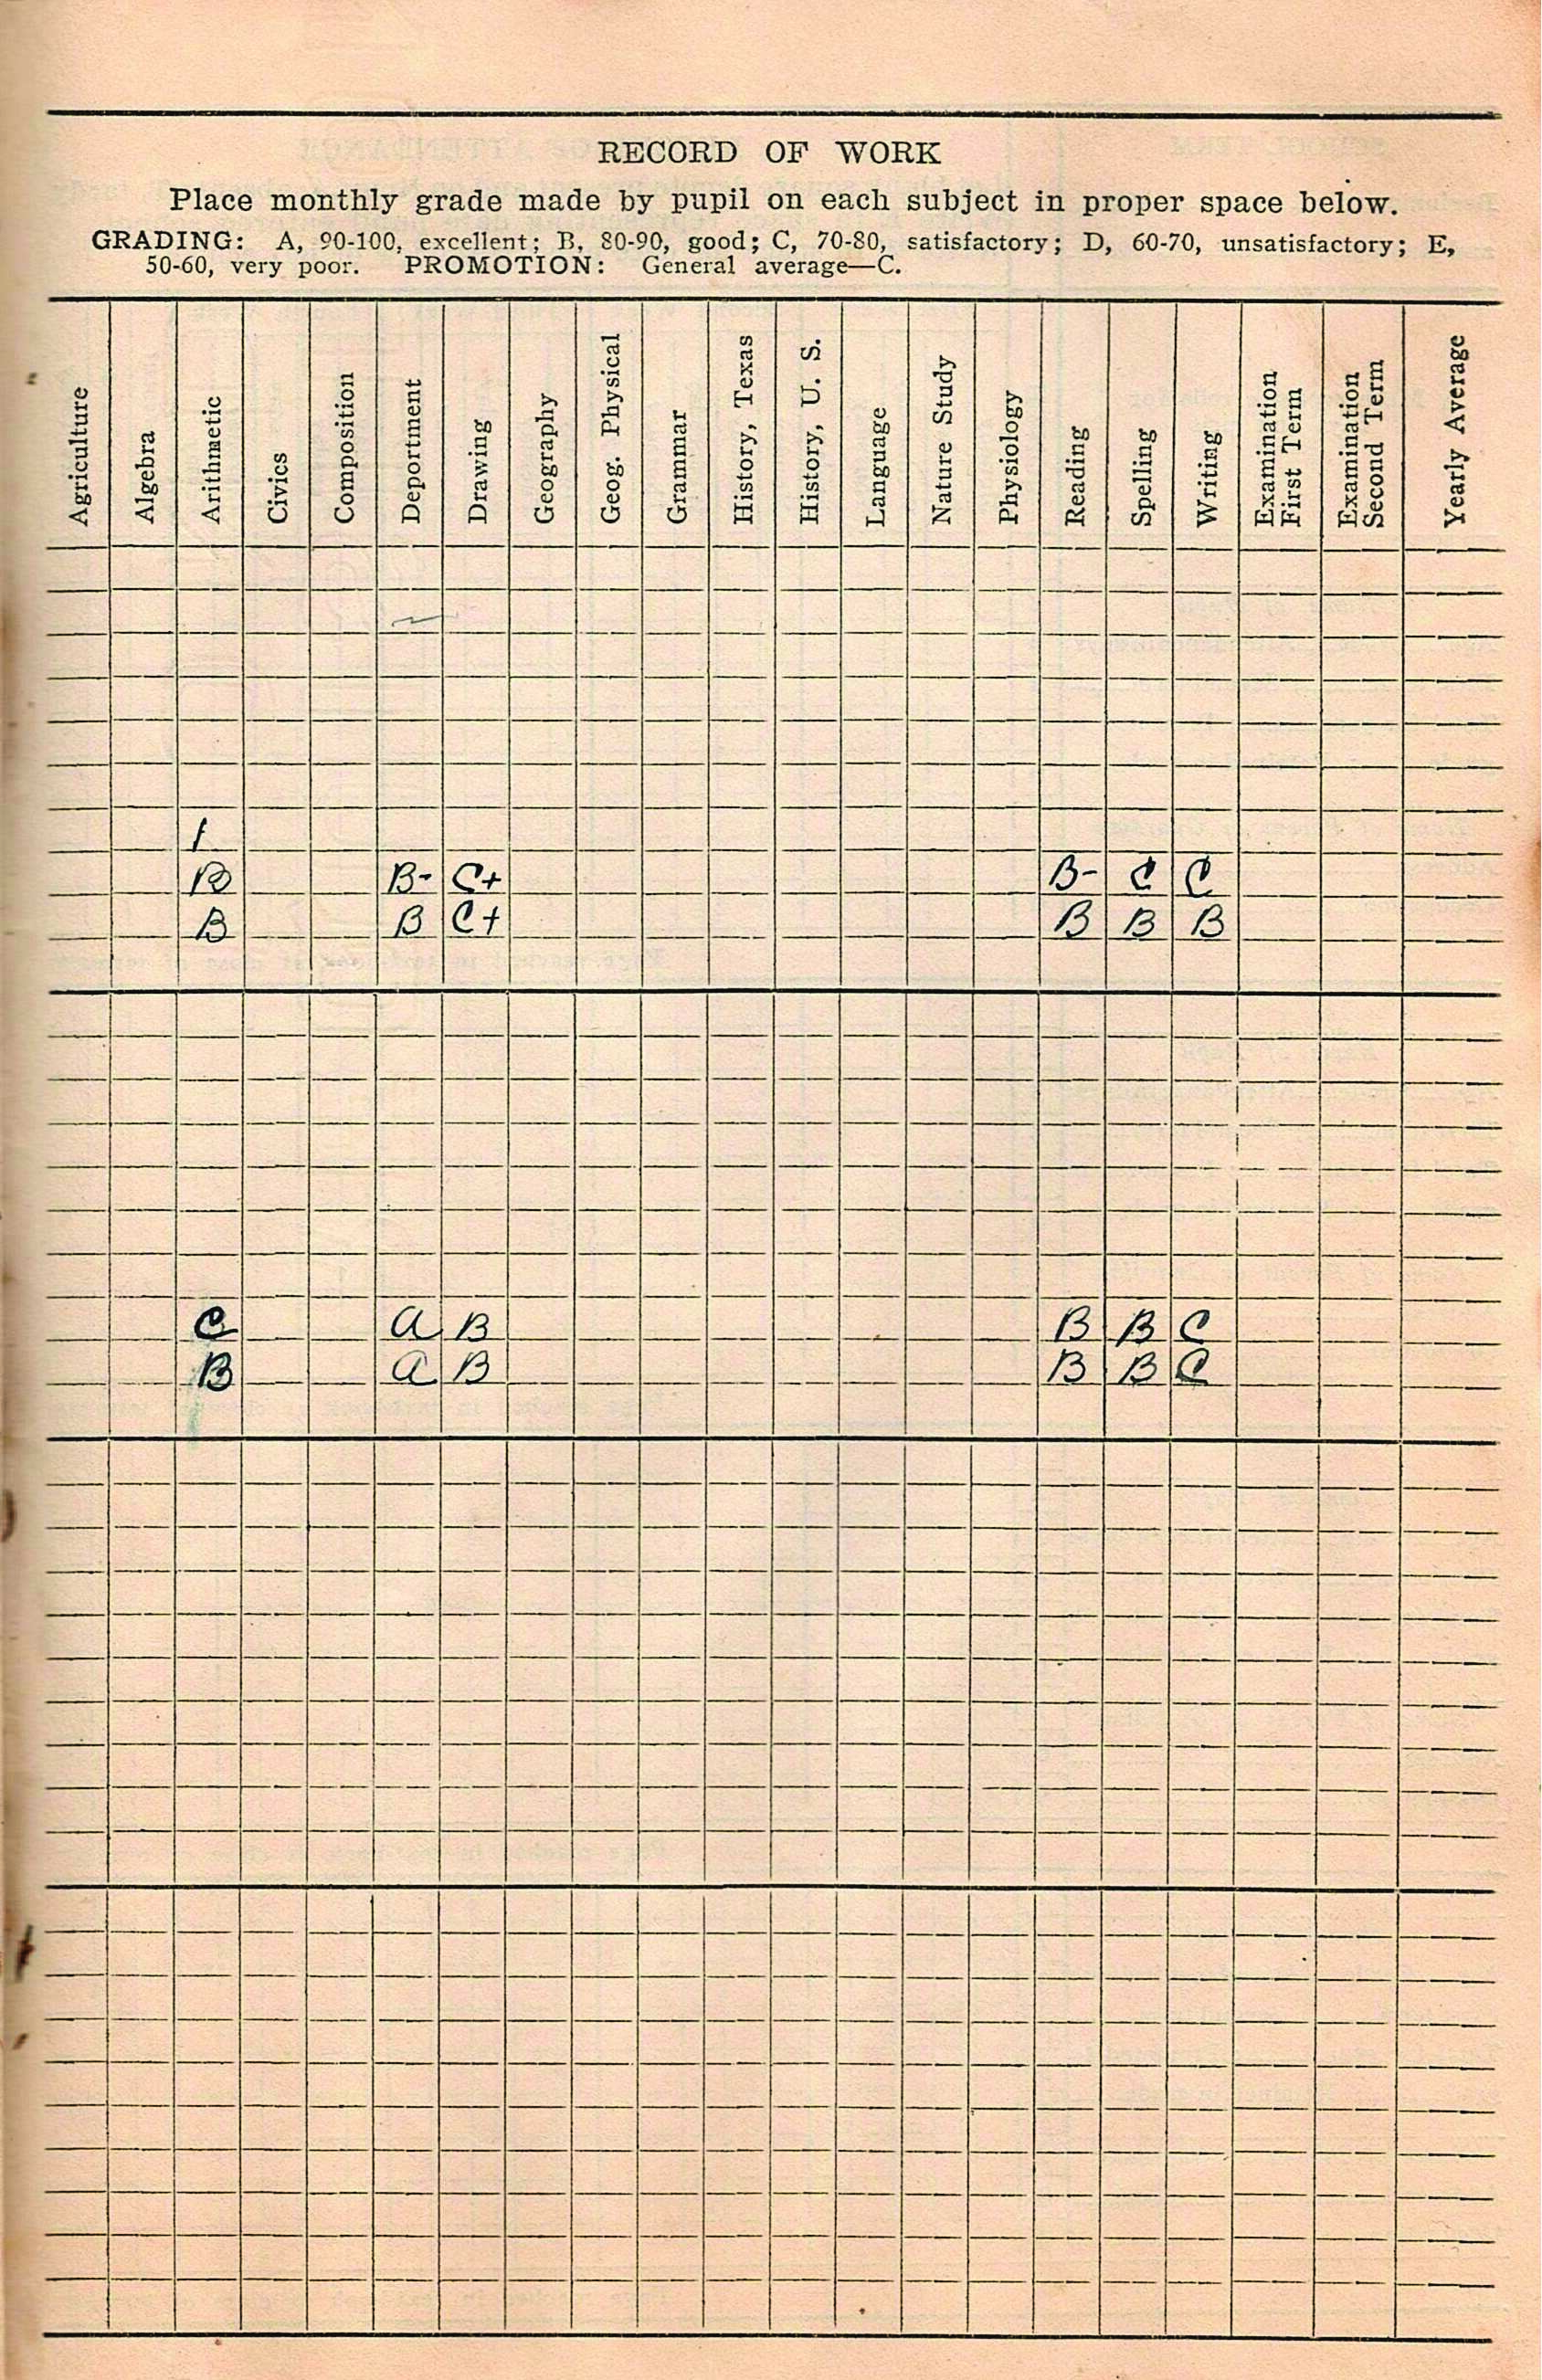 RECORD OF WORK
Place monthly grade made by pupil on each subject in proper space below.
GRADING: A, 90-100, excellent; B, 80-90, good; C, 70-80, satisfactory; D, 60-70, unsatisfactory; E,
50-60, very poor. PROMOTION: General average—C.
Agriculture
Algebra
Arithmetic
Civics
Composition
Deportment
Drawing
Geography
Geog. Physical
Grammar
History, Texas
History, U. S.
Language
Nature Study
Physiology
Reading
Spelling
Writing
Examination
First Term
Examination
Second Term
Yearly Average
B B- C+ B- C C
B B C+ B B B
C A B B B C
B A B B B C